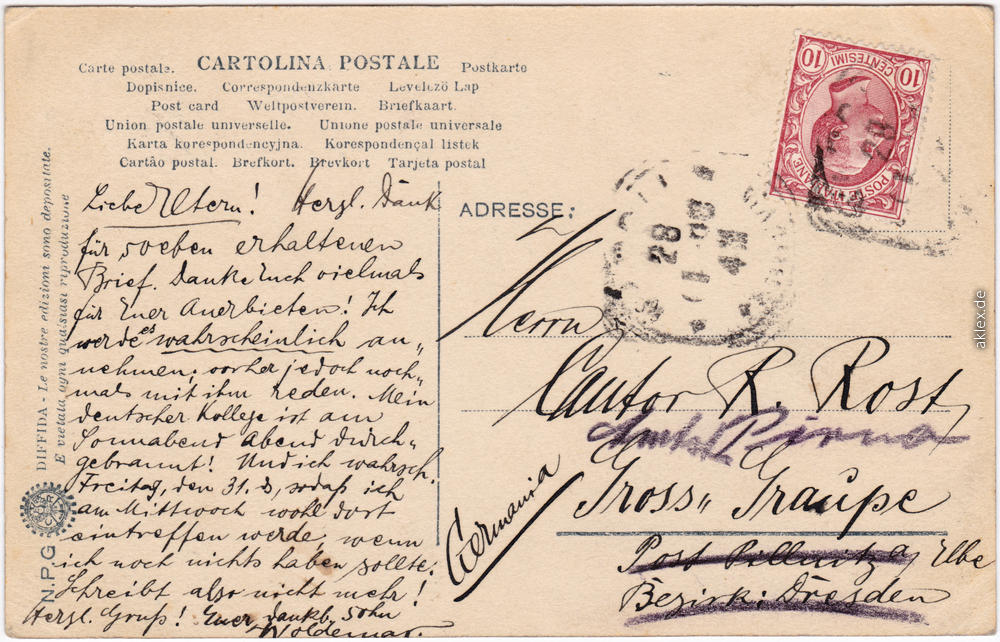 Carte postale. CARTOLINA POSTALE Postkarte
Dopisnice. Correspondenzkarte Levelező Lap
Post card Weltpostverein. Briefkaart.
Union postale universelle. Unione postale universale
Karta korespondencyjna. Korespondençal listek
Cartão postal. Brefkort. Brevkort Tarjeta postal
DIFFIDA - Le nostre edizioni sono depositate.
E vietata ogni qualsiasi riproduzione
N.P.G.
Liebe Eltern! Herzl. Dank
für soeben erhaltenen
Brief. Danke Euch vielmals
für Euer Anerbieten! Ich
werde es wahrscheinlich an„
nehmen; vorher jedoch noch„
mals mit ihm reden. Mein
deutscher Kollege ist am
Sonnabend abend durch„
gebrannt! Und ich wahrsch.
Freitag, den 31. 3, sodaß ich
am Mittwoch wohl dort
eintreffen werde, wenn
ich noch nichts haben sollte.
Schreibt also nicht mehr!
Herzl. Gruß! Euer dankb. Sohn
Woldemar.
ADRESSE:
Herrn
Cantor R. Rost
Amtsh Pirna
Gross„ Graupe
(Germania
Post Pillnitz a/ Elbe
Bezirk: Dresden
10 CENTESIMI 10
POSTE ITALIANE
28
aklex.de